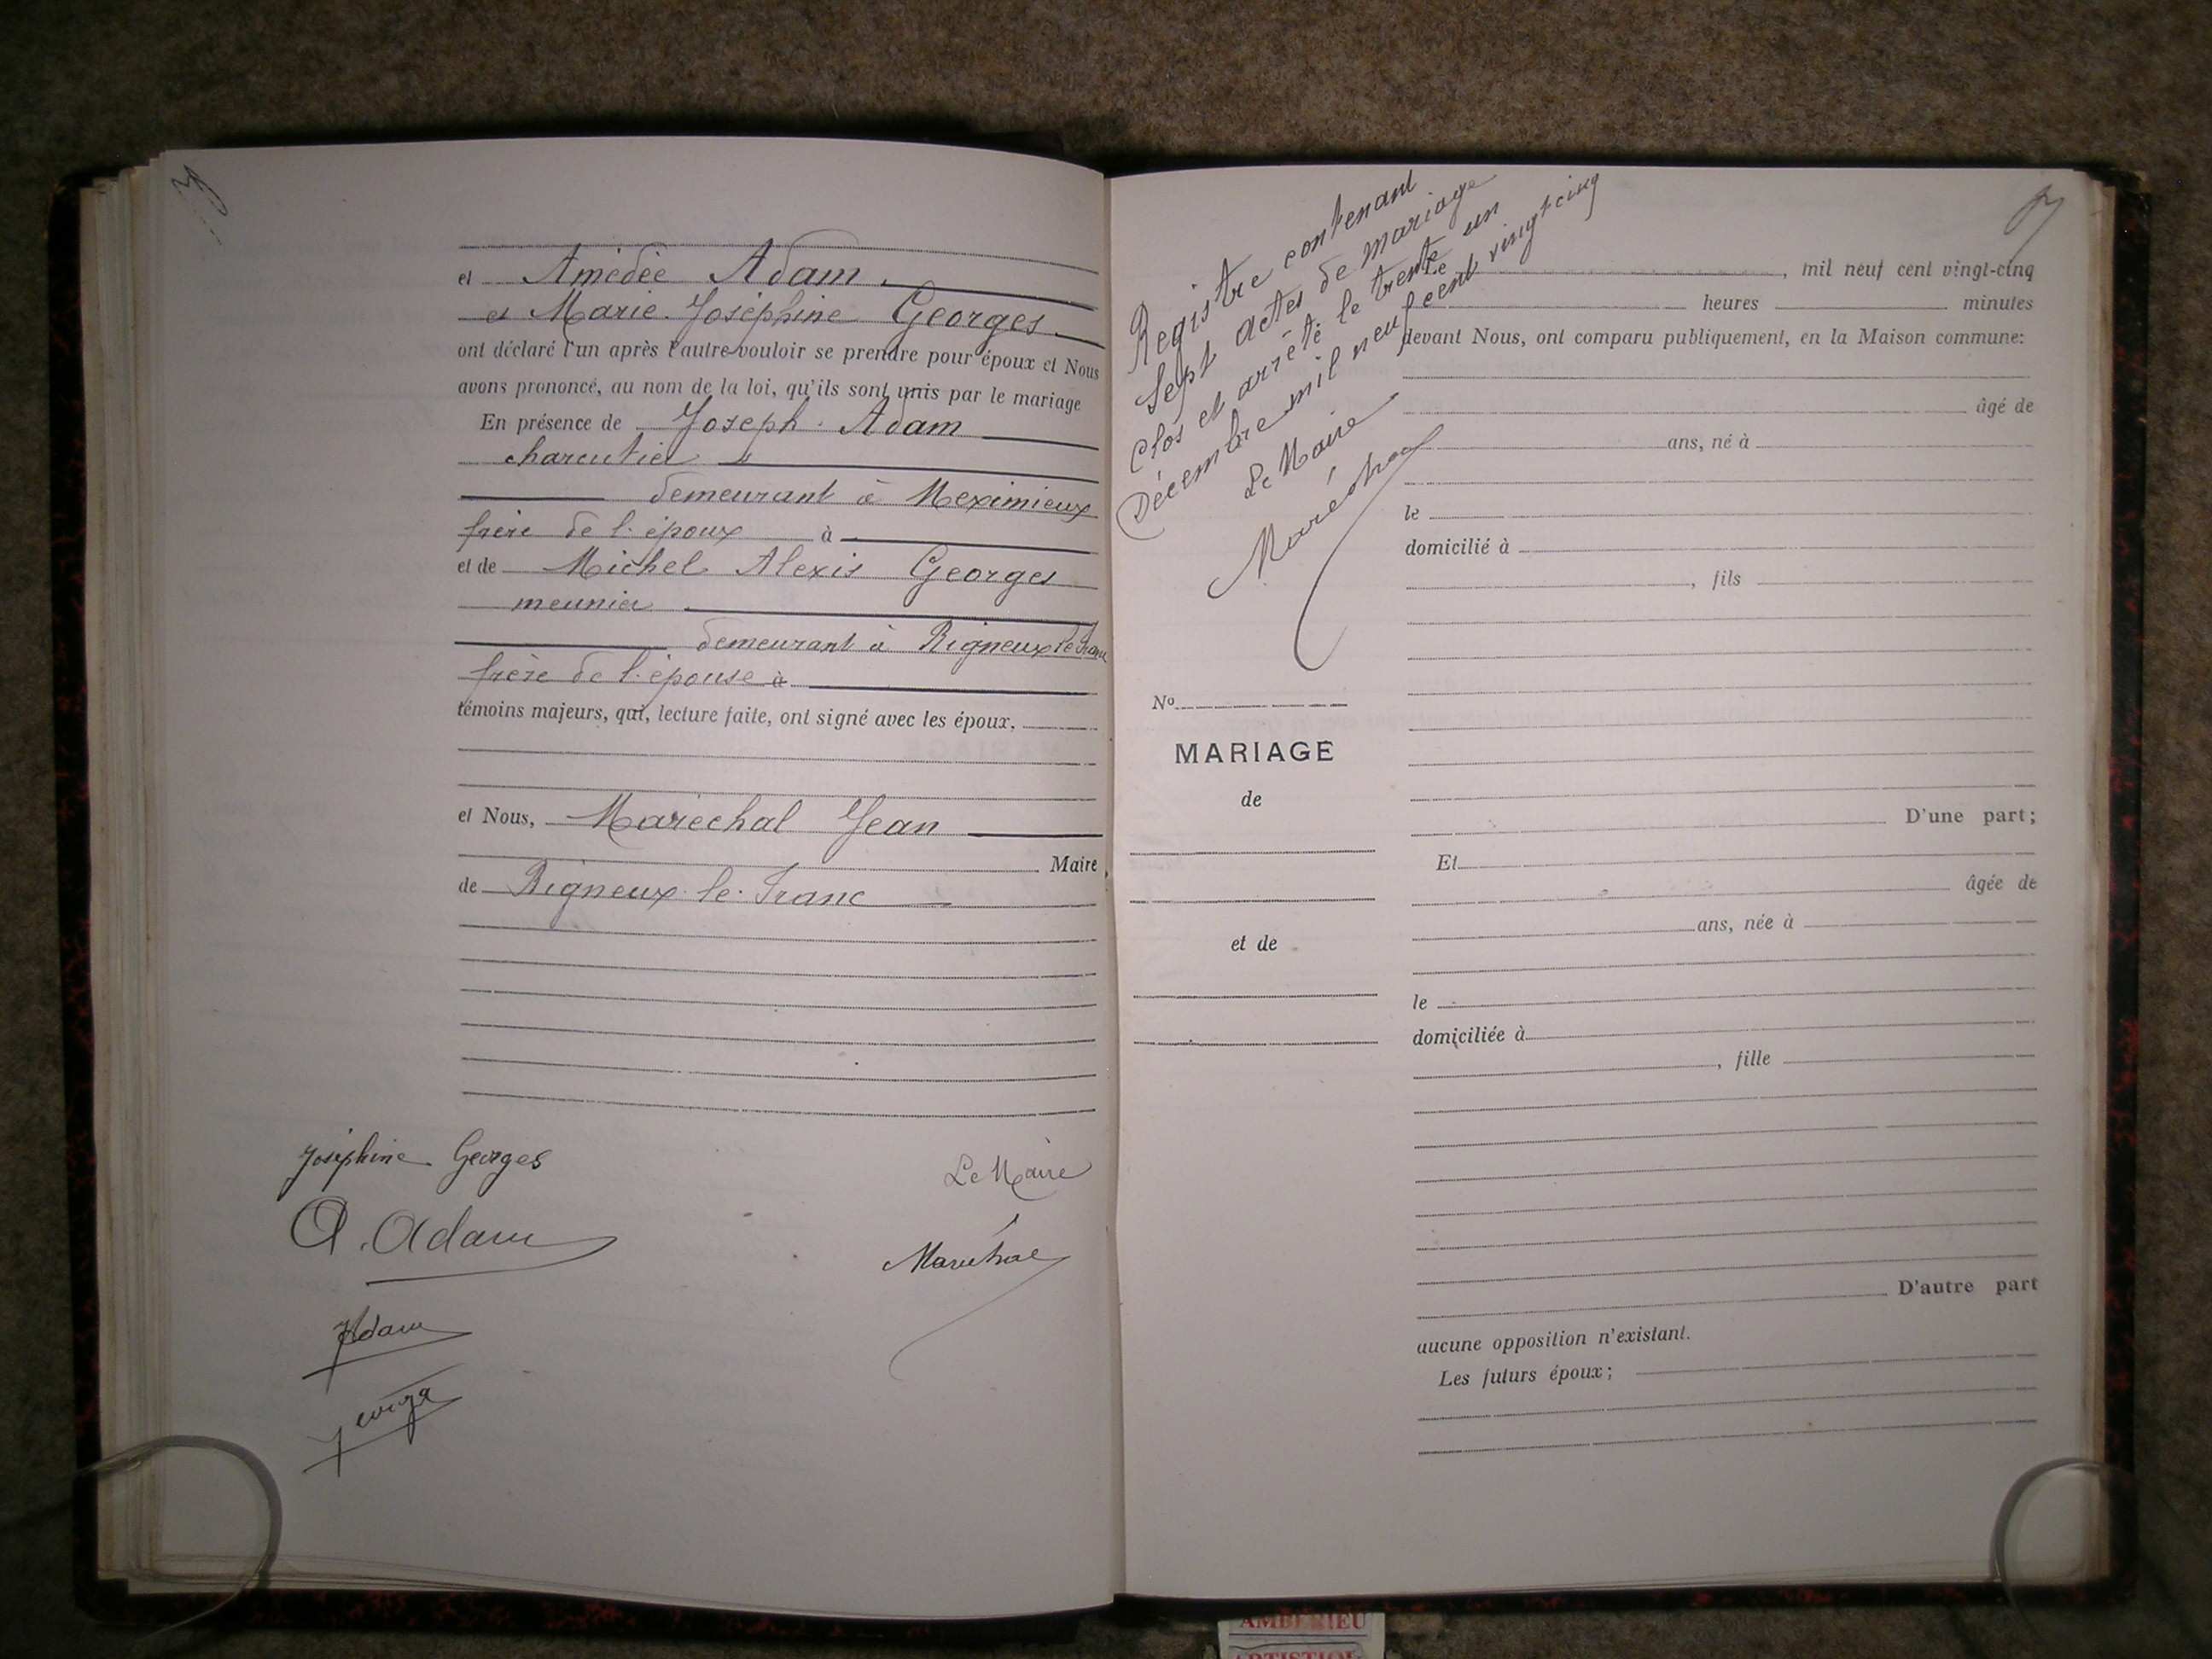 et Amédée Adam
et Marie Joséphine Georges
ont déclaré l'un après l'autre vouloir se prendre pour époux et Nous
avons prononcé, au nom de la loi, qu'ils sont unis par le mariage
En présence de Joseph Adam
charcutier
demeurant à Meximieux
frère de l'époux à
et de Michel Alexis Georges
meunier
demeurant à Rigneux le Franc
frère de l'épouse à
témoins majeurs, qui, lecture faite, ont signé avec les époux,
et Nous, Maréchal Jean
Maire
de Rigneux-le-Franc
Joséphine Georges
A. Adam
Adam
Le Maire
Maréchal
Registre contenant
Sept actes de mariage
Clos et arrêté le trente un
Décembre mil neuf cent vingt cinq
Le Maire
Maréchal
No
MARIAGE
de
et de
Le , mil neuf cent vingt-cinq
heures minutes
devant Nous, ont comparu publiquement, en la Maison commune:
âgé de
ans, né à
le
domicilié à
, fils
D'une part;
Et
âgée de
ans, née à
le
domiciliée à
, fille
D'autre part
aucune opposition n'existant.
Les futurs époux;
AMBERIEU
ARTISTIQU